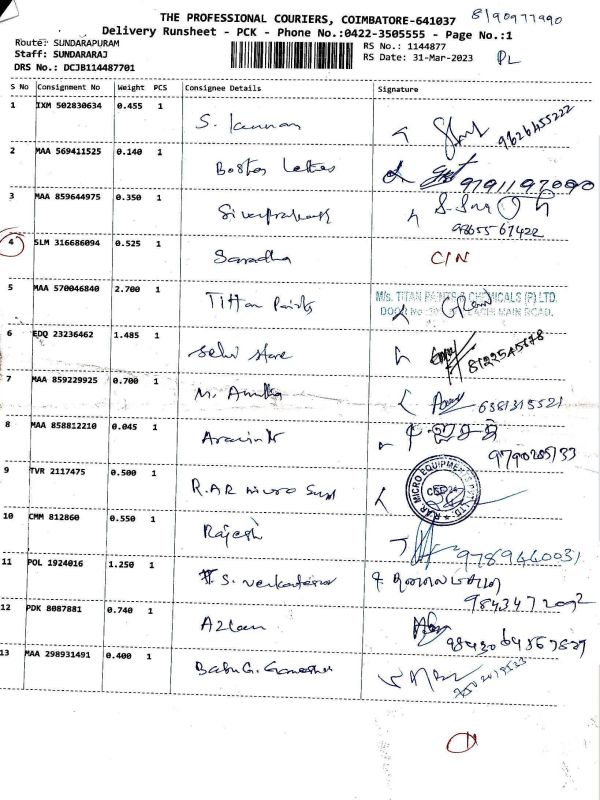 THE PROFESSIONAL COURIERS, COIMBATORE-641037
Delivery Runsheet - PCK - Phone No.:0422-3505555 - Page No.:1
Route: SUNDARAPURAM
Staff: SUNDARARAJ
DRS No.: DCJB114487701
RS No.: 1144877
RS Date: 31-Mar-2023
PL
S No Consignment No Weight PCS Consignee Details Signature
1 IXM 502830634 0.455 1 S. Kannan 9626455222
2 MAA 569411525 0.140 1 9791197090
3 MAA 859644975 0.350 1 9865567422
4 SLM 316686094 0.525 1 Saradha C/N
5 MAA 570046840 2.700 1 Tittan Paints M/s. TITAN PAINTS & CHEMICALS (P) LTD.
MAIN ROAD.
6 EDQ 23236462 1.485 1 Selvi Store 8122545678
7 MAA 859229925 0.700 1 M. Anitha 6381315521
8 MAA 858812210 0.045 1 Aravinth
9 TVR 2117475 0.500 1 R.AR micro R.AR MICRO EQUIPMENTS PVT. LTD.
10 CMM 812860 0.550 1 Rajesh 9789460031
11 POL 1924016 1.250 1 S. Venkatesan
12 PDK 8087881 0.740 1 Azlam
13 MAA 298931491 0.400 1 Babu G.